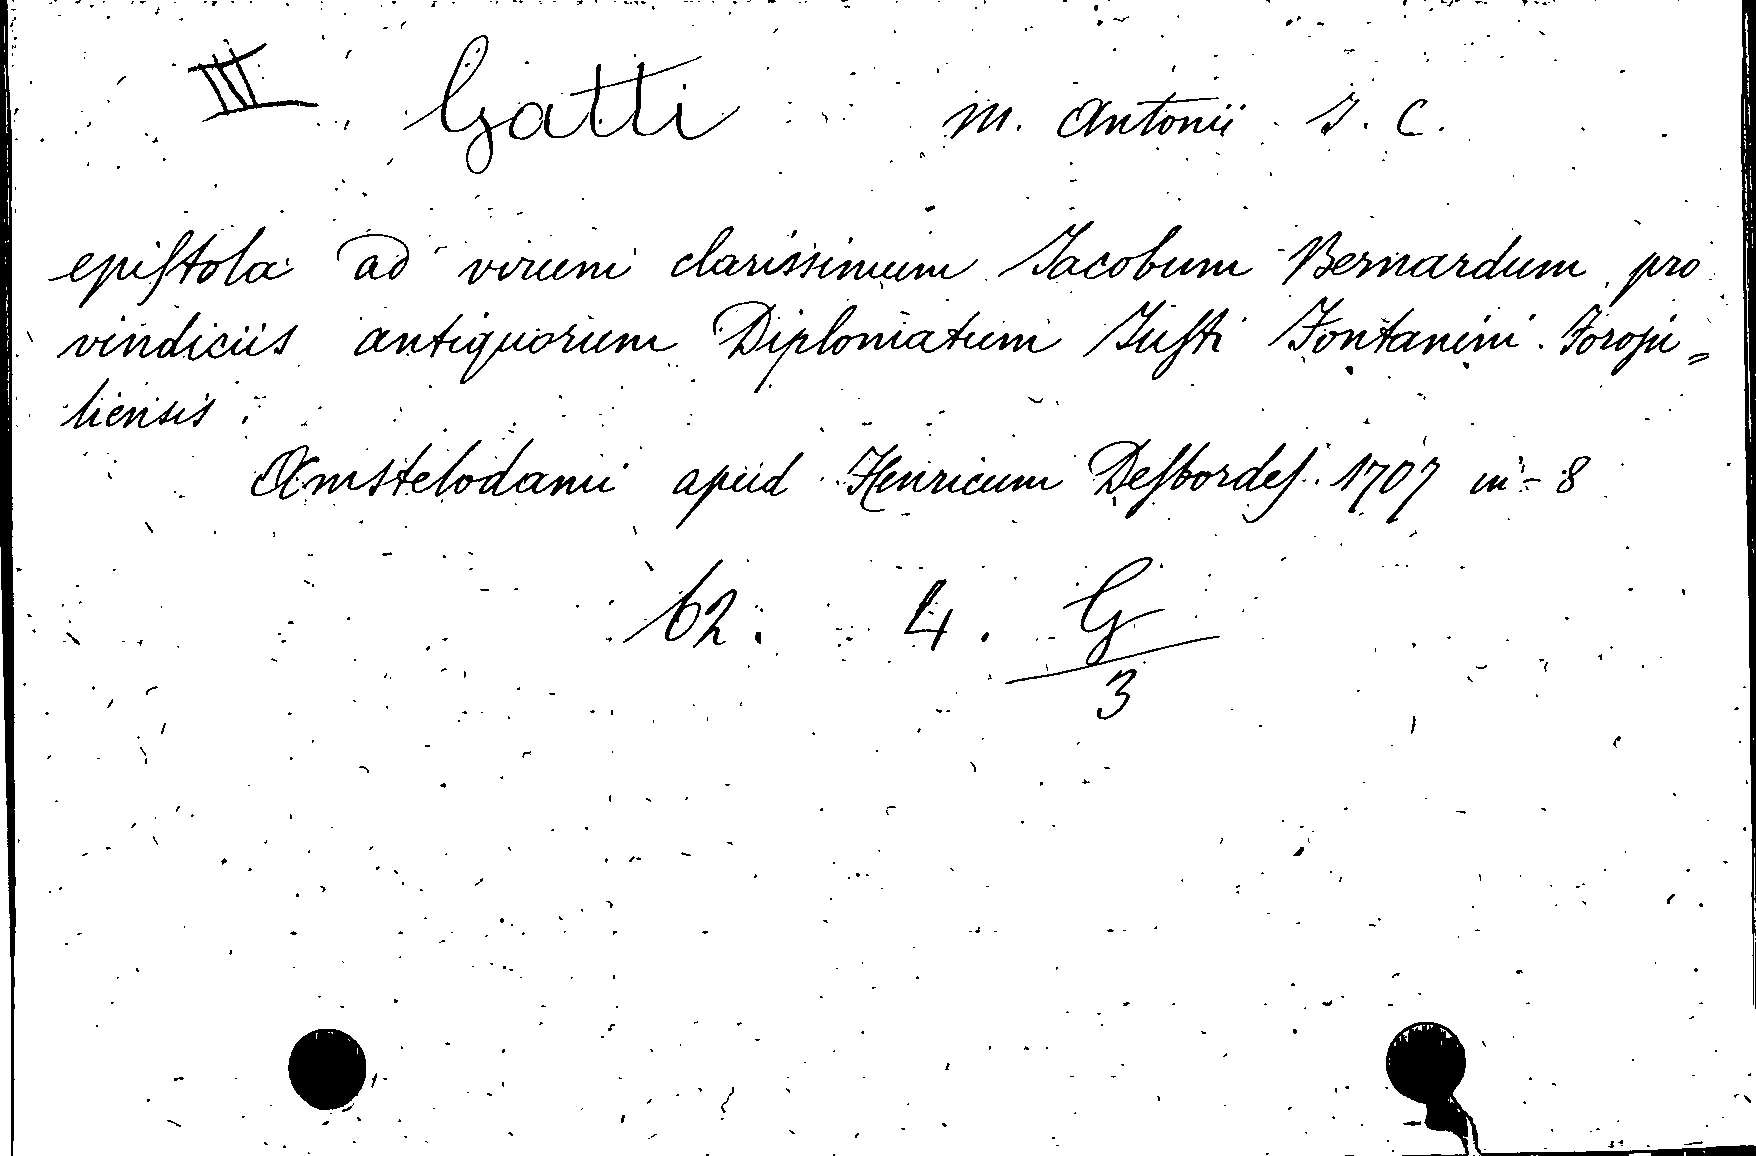 III Gatti M. Antonii I. C.
epiſtola ad virum clarissimum Jacobum Bernardum pro
vindiciis antiquorum Diplomatum Juſti Fontanini. Foroju=
liensis.
Amstelodami apud Henricum Deſbordeſ. 1707 in-8
62. 4. G
3